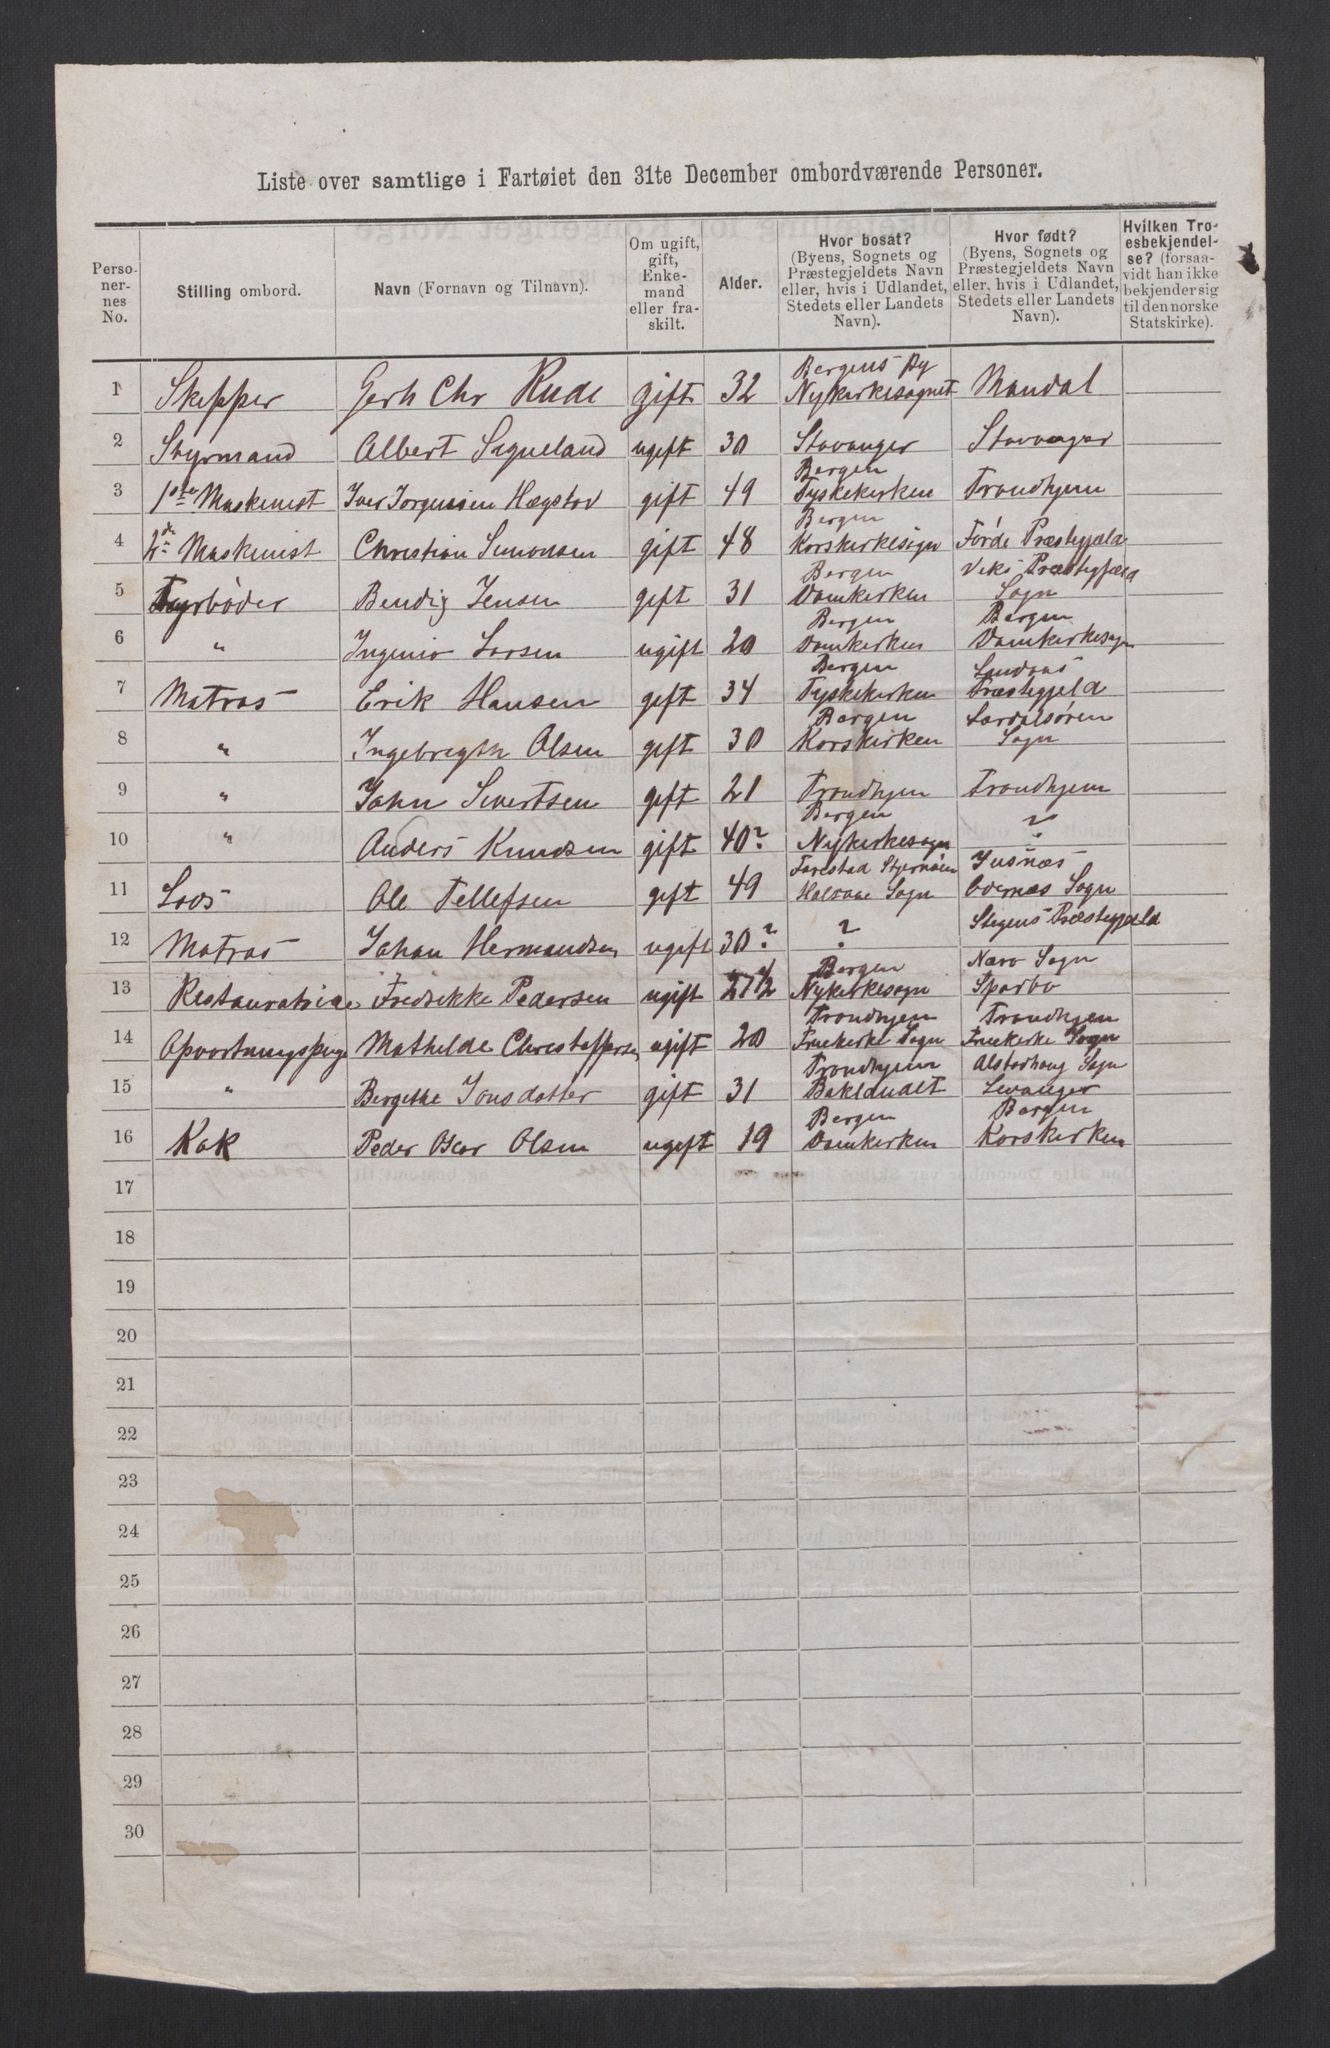 Liste over samtlige i Fartøiet den 31te December ombordværende Personer.
Perso-nernes No. | Stilling ombord. | Navn (Fornavn og Tilnavn). | Om ugift, gift, Enke-mand eller fra-skilt. | Alder. | Hvor bosat? (Byens, Sognets og Præstegjeldets Navn eller, hvis i Udlandet, Stedets eller Landets Navn). | Hvor født? (Byens, Sognets og Præstegjeldets Navn eller, hvis i Udlandet, Stedets eller Landets Navn). | Hvilken Tro-esbekjendel-se? (forsaa-vidt han ikke bekjender sig til den norske Statskirke).
1 Skipper Gerh Chr Rude gift 32 Bergens By Nykirkesognet Mandal
2 Styrmand Albert Sigueland ugift 30 Stavanger Stavanger
3 1ste Maskinist Iver Jorgensen Hægstov gift 49 Bergen Tyskekirken Trondhjem
4 2de Maskinist Christian Simonsen gift 48 Bergen Korskirkesogn Førde Præstegjæld
5 Fyrbøder Bendig Jensen gift 31 Bergen Domkirken Viks Præstegjæld Sogn
6 " Larsen ugift 20 Bergen Domkirken Bergen Domkirkesogn
7 Matros Erik Hansen gift 34 Bergen Tyskekirken Lindaas Præstegjeld
8 " Ingebregth Olsen gift 30 Bergen Korskirken Lærdalsøren Sogn
9 " John Sivertsen gift 21 Trondhjem Trondhjem
10 " Anders Knudsen gift 40? Bergen Nykirkesogn ?
11 Lods Ole Tellefsen gift 49 Farestad Halsaae Sogn Sogn
12 Matros Johan Hermandsen ugift 30? ? Stegens Præstegjæld
13 Restauratrice Fredrikke Pedersen ugift 27 1/2 Bergen Nykirkesogn Nærø Sogn Sparbo
14 Opvartningspige Mathilde Christoffersen ugift 20 Trondhjem Fruekirke Sogn Trondhjem Fruekirke Sogn
15 " Bergithe Jonsdatter gift 31 Trondhjem Baklandet Alstahoug Sogn Levanger
16 Kok Peder Oscar Olsen ugift 19 Bergen Domkirken Bergen Korskirken
17
18
19
20
21
22
23
24
25
26
27
28
29
30